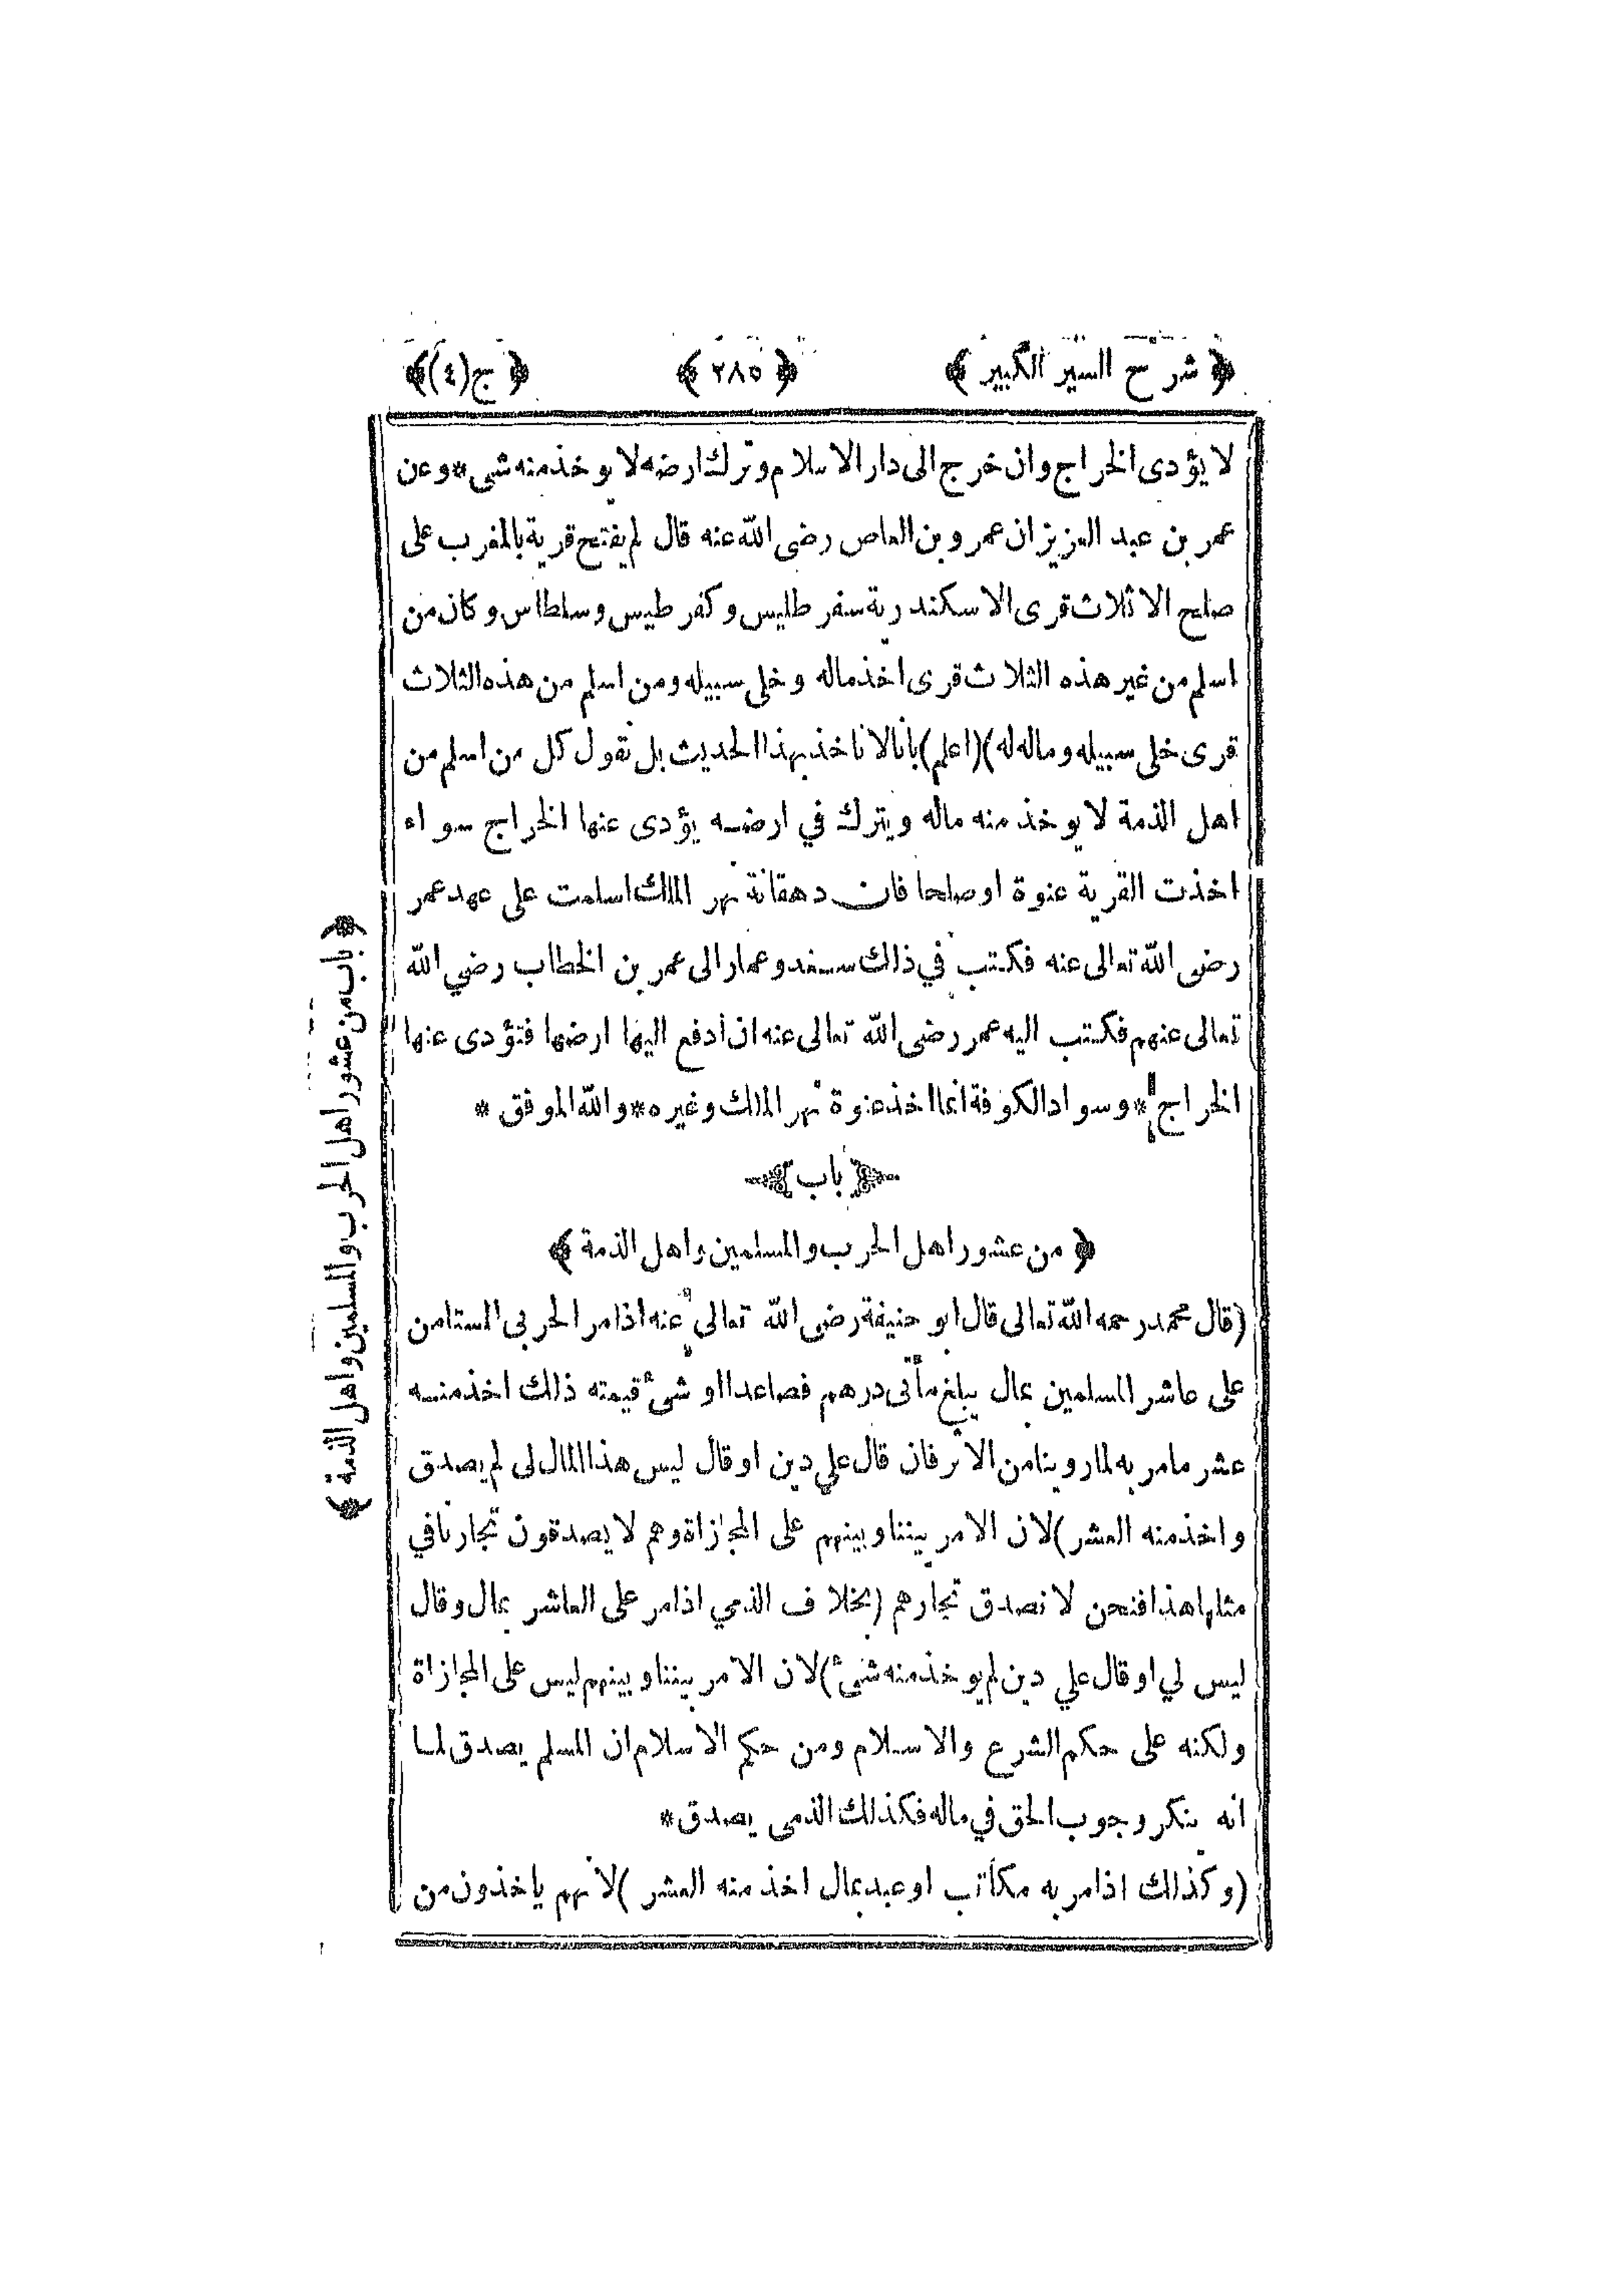 ﴿ شرح السير الكبير ﴾ ﴿ ٢٨٥ ﴾ ﴿ ج(٤) ﴾
لا يؤدى الخراج وان خرج الى دار الاسلام وترك ارضه لا يوخذ منه شى * وعن
عمر بن عبد العزيز ان عمرو بن العاص رضى الله عنه قال لم يفتح قرية بالمغرب على
صلح الا ثلاث قرى الاسكندرية سفر طليس وكفر طيس وسلطاس وكان من
اسلم من غير هذه الثلاث قرى اخذ ماله وخلى سبيله ومن اسلم من هذه الثلاث
قرى خلى سبيله وماله له)(اعلم) بانا لا ناخذ بهذا الحديث بل نقول كل من اسلم من
اهل الذمة لا يوخذ منه ماله ويترك في ارضه يؤدى عنها الخراج سواء
اخذت القرية عنوة او صلحا فان دهقانة نهر الملك اسلمت على عهد عمر
رضى الله تعالى عنه فكتب في ذلك سعد وعمار الى عمر بن الخطاب رضي الله
تعالى عنهم فكتب اليه عمر رضى الله تعالى عنه ان ادفع اليها ارضها فتؤدى عنها
الخراج * وسواد الكوفة انما اخذ عنوة نهر الملك وغيره * والله الموفق *
﴿ باب ﴾
﴿ من عشور اهل الحرب والمسلمين واهل الذمة ﴾
(قال محمد رحمه الله تعالى قال ابو حنيفة رضى الله تعالى عنه اذا مر الحربى المستامن
على عاشر المسلمين بمال يبلغ مأتى درهم فصاعدا او شئ قيمته ذلك اخذ منه
عشر ما مر به لما روينا من الاثر فان قال علي دين او قال ليس هذا المال لى لم يصدق
واخذ منه العشر) لان الامر بيننا وبينهم على المجازاة وهم لا يصدقون تجارنا في
مثل هذا فنحن لا نصدق تجارهم (بخلاف الذمي اذا مر على العاشر بمال وقال
ليس لي او قال علي دين لم يوخذ منه شئ) لان الامر بيننا وبينهم ليس على المجازاة
ولكنه على حكم الشرع والاسلام ومن حكم الاسلام ان المسلم يصدق لما
انه ينكر وجوب الحق في ماله فكذلك الذمى يصدق *
(وكذلك اذا مر به مكاتب او عبد بمال اخذ منه العشر) لانهم ياخذون من
﴿ باب من عشور اهل الحرب والمسلمين واهل الذمة ﴾